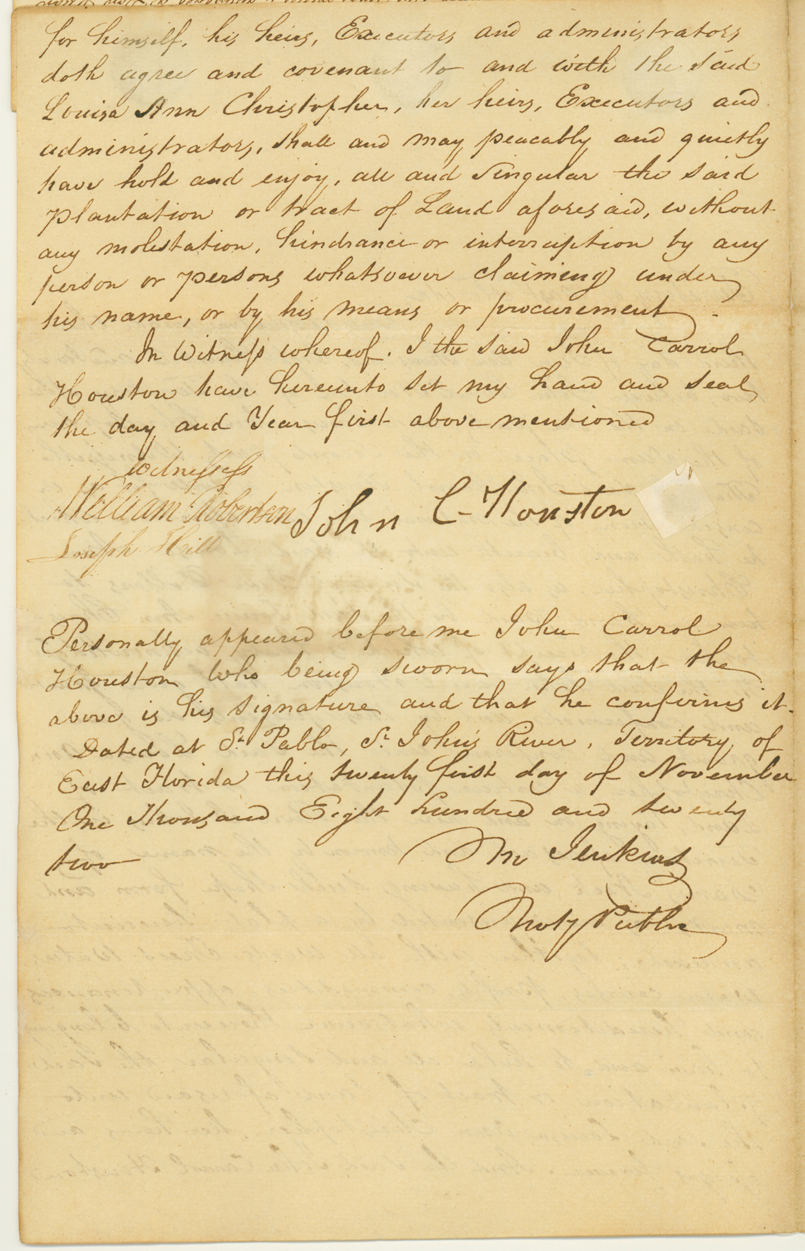 for himself, his heirs, Executors and administrators
doth agree and covenant to and with the said
Louisa Ann Christopher, her heirs, Executors and
administrators, shall and may peacably and quietly
have hold and enjoy, all and Singular the said
plantation or tract of Land aforesaid, without
any molestation, hindrance or interruption by any
person or persons whatsoever claiming under
his name, or by his means or procurement.
In Witness whereof. I the said John Carrol
Houston have hereunto set my hand and seal,
the day and Year first above mentioned
witnesses
William Robertson John C. Houston
Joseph Hill
Personally appeared before me John Carrol
Houston who being sworn says that the
above is his signature and that he confirms it.
Dated at St. Pablo, St. John's River, Territory of
East Florida this twenty first day of November
One Thousand Eight hundred and twenty
two
Wm Jenkins
Noty Public